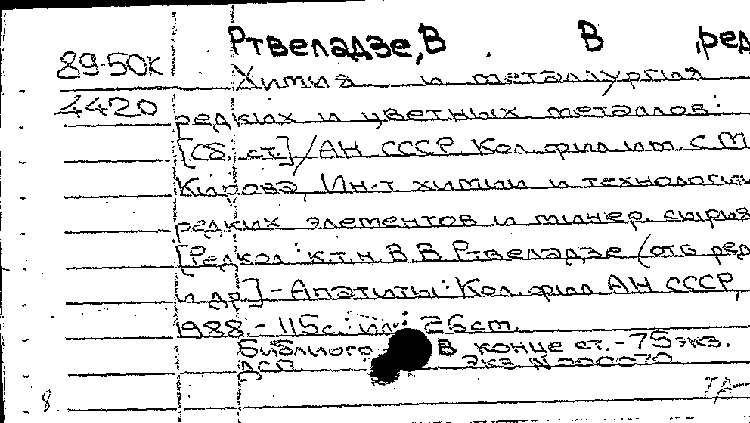 Ртвеладзе,В . В ,ред
89-50к
Химия и металлургия
4420
редких и цветных металлов:
[Сб. ст.]/АН СССР Кол. фил им. С М
Кирова, Ин-т химии и технологии
редких элементов и минер. сырья
[Редкол: к.т.н. В.В Ртвеладзе (отв ред
и др.] - Апатиты: Кол. фил АН СССР,
1988. - 115с: ил; 26см.
Библиогр В конце ст. - 75 экз.
ДСП Экз N 000070
8.